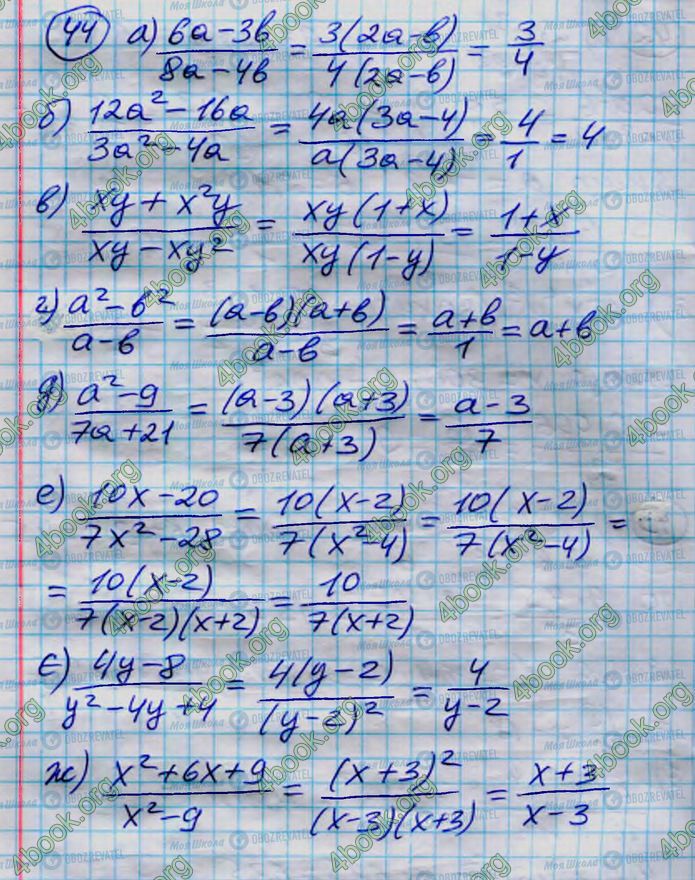 44 а) (6a-3b)/(8a-4b) = (3(2a-b))/(4(2a-b)) = 3/4
б) (12a²-16a)/(3a²-4a) = (4a(3a-4))/(a(3a-4)) = 4/1 = 4
в) (xy+x²y)/(xy-xy²) = (xy(1+x))/(xy(1-y)) = (1+x)/(1-y)
г) (a²-b²)/(a-b) = ((a-b)(a+b))/(a-b) = (a+b)/1 = a+b
д) (a²-9)/(7a+21) = ((a-3)(a+3))/(7(a+3)) = (a-3)/7
е) (10x-20)/(7x²-28) = (10(x-2))/(7(x²-4)) = (10(x-2))/(7(x²-4)) =
= (10(x-2))/(7(x-2)(x+2)) = 10/(7(x+2))
є) (4y-8)/(y²-4y+4) = (4(y-2))/((y-2)²) = 4/(y-2)
ж) (x²+6x+9)/(x²-9) = ((x+3)²)/((x-3)(x+3)) = (x+3)/(x-3)
4book.org
Моя Школа
OBOZREVATEL